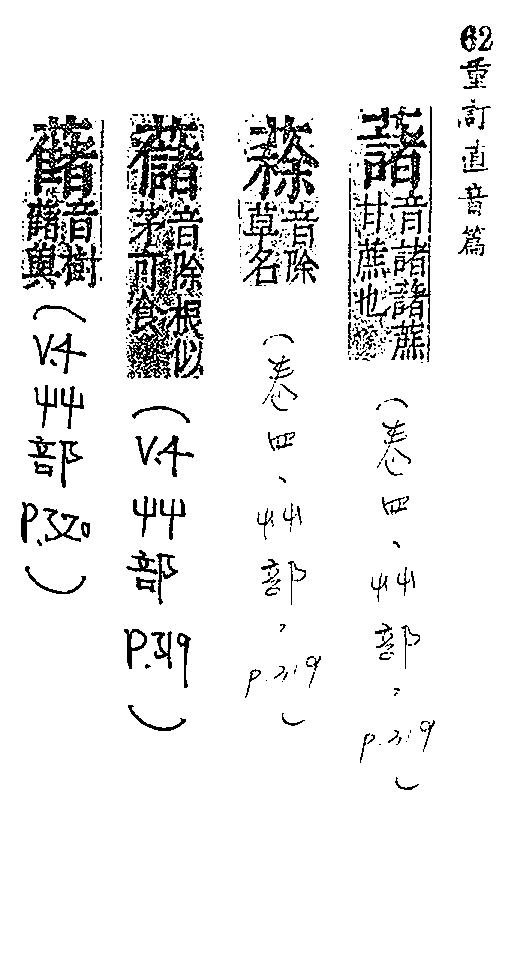 62重訂直音篇
藷音諸諸蔗甘蔗也
(卷四、艸部,P.319)
蒢音除草名
(卷四、艸部,P.319)
蒢音除根似茅可食
(V.4艸部P.319)
音樹藷與
(V.4艸部P.320)